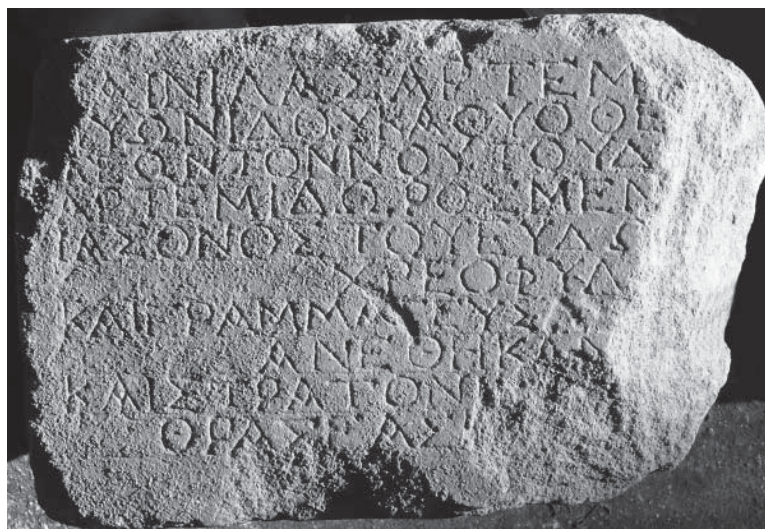 ΑΙΝΙΑΑΣΑΡΤΕΜ
ΥΩΝΙΔΟΥΚΑΘΥΟΘΕ
ΤΟΝΤΟΝΝΟΥΤΟΥΔ
ΑΡΤΕΜΙΔΩΡΟΣΜΕΝ
ΙΑΣΟΝΟΣΤΟΥΕΥΔΩ
ΧΡΕΟΦΥΛ
ΚΑΙΓΡΑΜΜΑΤΕΥΣ
ΑΝΕΘΗΚΑΝ
ΚΑΙΣΤΡΑΤΟΝ
ΘΡΑΣΕΑΣ